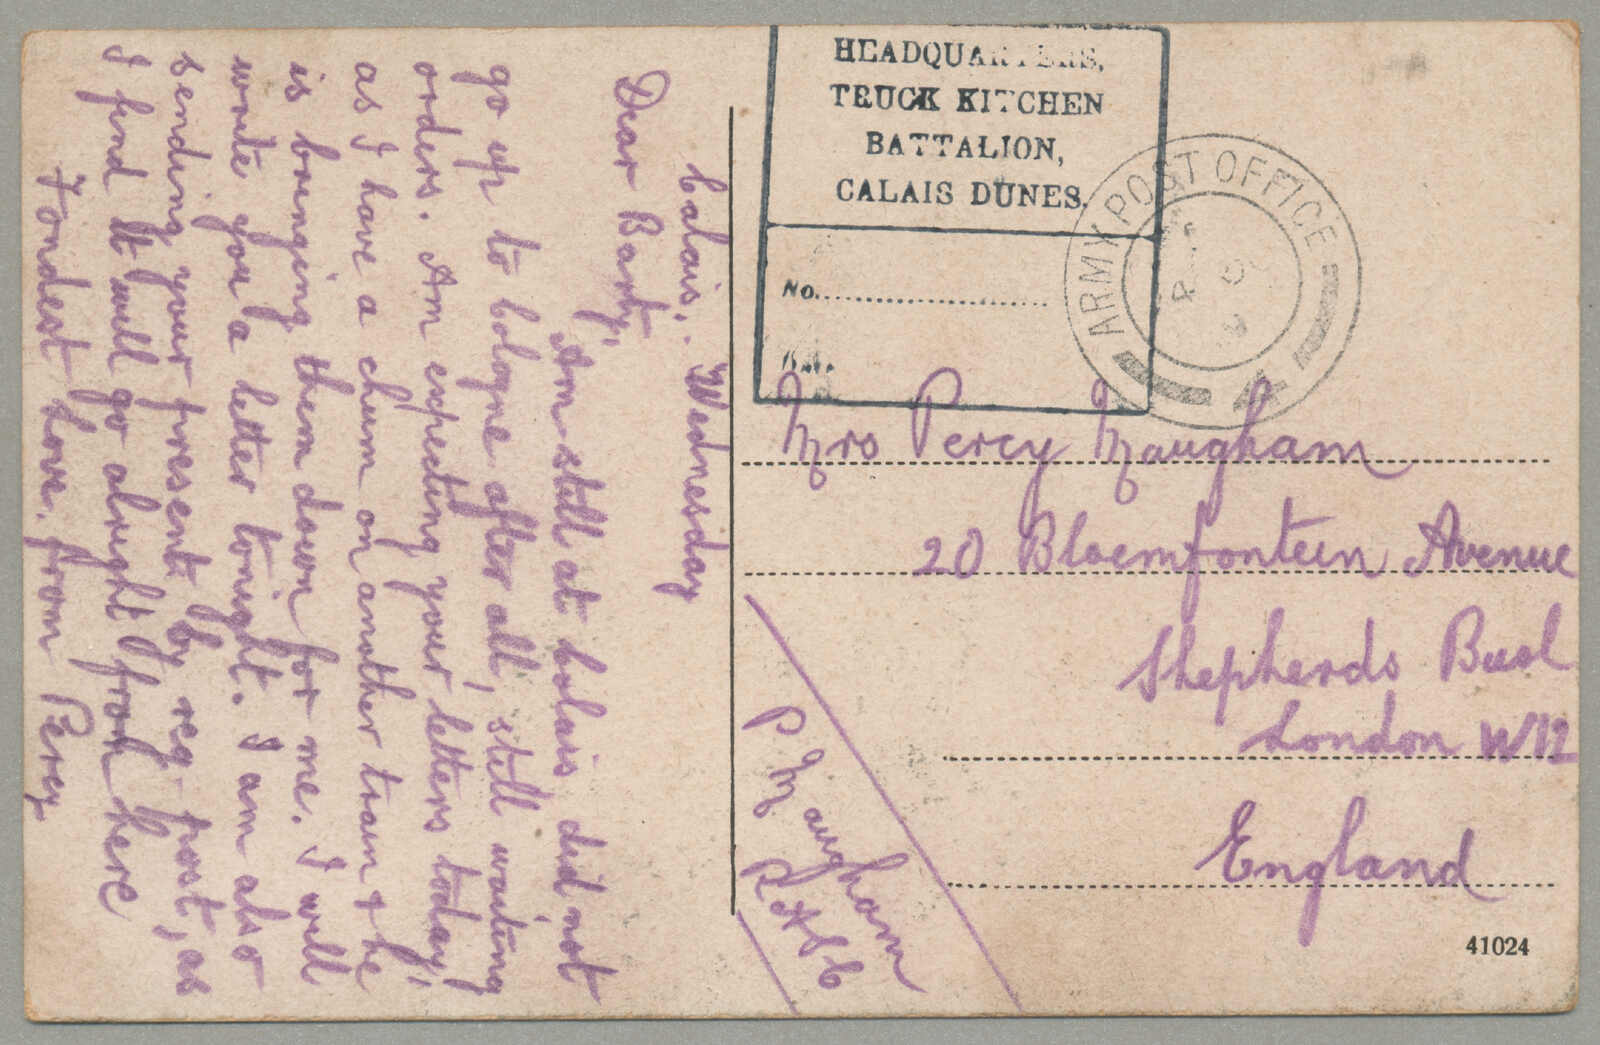 Calais. Wednesday
Dear Barty,
Am still at Calais did not
go up to Cologne after all, still waiting
orders. Am expecting your letters today,
as I have a chum on another train & he
is bringing them down for me. I will
write you a letter tonight. I am also
sending your present by reg. post, as
I find it will go alright from here
Fondest Love. from Percy
HEADQUARTERS,
TRUCK KITCHEN
BATTALION,
CALAIS DUNES.
No.
ARMY POST OFFICE
4
Mrs Percy Maugham
20 Bloemfontein Avenue
Shepherds Bush
London W12
England
P Maugham
RASC
41024